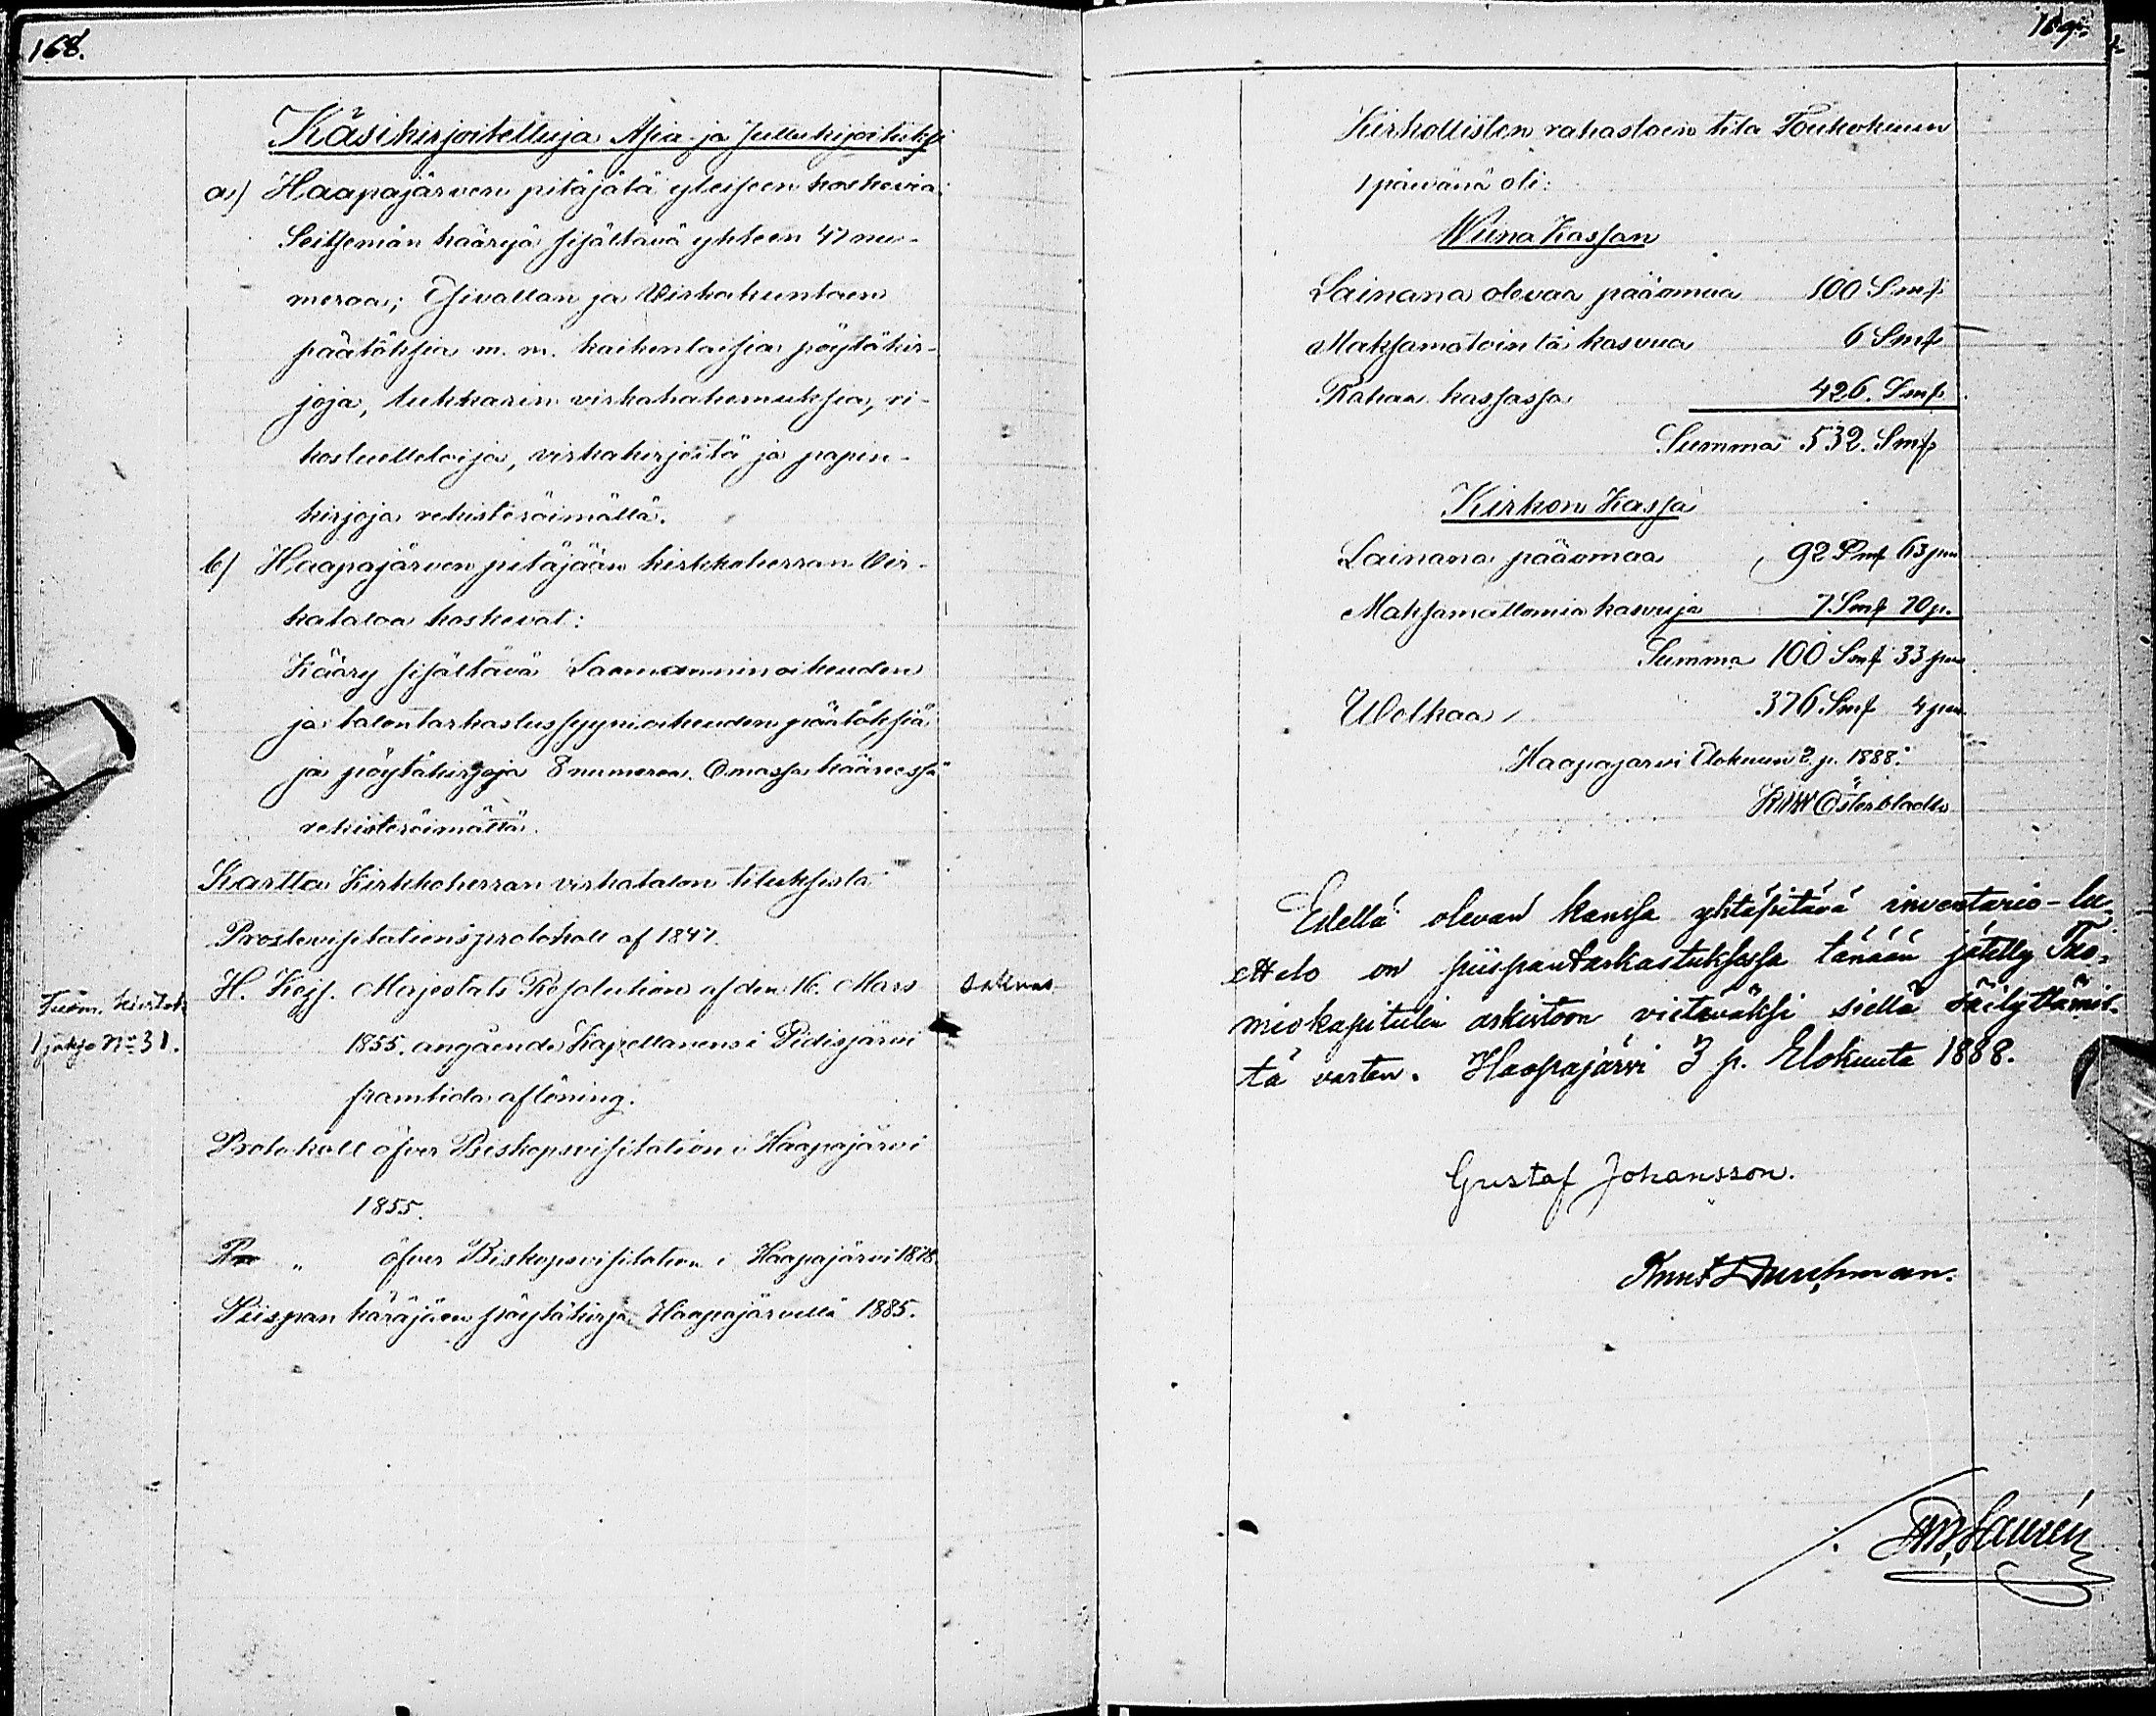 168.
Käsikirjoitettuja Asia- ja
a) Haapajärven pitäjätä yleiseen koskevia
Seitsemän kääryä sisältävä yhteen 47 nu-
meroa; Esivallan ja Virkakuntaen
päätöksiä m. m. kaikenlaisia pöytäkir-
joja, lukkarin virkahakemuksia, ri-
kosluetteloija, virkakirjoitä ja papin-
kirjoja rekisteröimättä.
b) Haapajärven pitäjään kirkkoherran Vir-
kataloa koskevat:
Kääry sisältävä Laamanninoikeuden
ja talontarkastussyynioikeuden päätöksiä
ja pöytäkirjoja 8 numeroa. Omassa kääreessä
rekisteröimättä.
Kartta Kirkkoherran virkatalon tiluksista
Prostevisitationsprotokoll af 1847.
H. Kejs. Majestäts Resolution af den 16. Mars
1855. angående Kapellanens i Pidisjärvi
framtida aflöning.
Tuom. kiertok.
1 jakso No 31.
Protokoll öfver Biskopsvisitation i Haapajärvi
1855.
„ öfver Biskopsvisitation i Haapajärvi 1878.
Piispan käräjäen pöytäkirja Haapajärvellä 1885.
169.
Kirkollisten rahastoin tila Toukokuun
1 päivänä oli:
Wiina Kassan
Lainana olevaa pääomaa 100 Smk
Maksamatointa kasvua 6 Smk
Rahaa kassassa 426. Smk
Summa 532. Smk
Kirkon Kassa
Lainana pääomaa 92 Smk 63 pen
Maksamattomia kasvuja 7 Smk 70 p.
Summa 100 Smk 33 pen
Welkaa 376 Smk 4 pen
Haapajärvi Elokuun 2 p. 1888.
Österbladh
Edellä olevan kanssa yhtäpitävä inventario-lu-
ettelo on piispantarkastuksessa tänään jätetty Tuo-
miokapitulin arkistoon vietäväksi siellä säilyttämis-
tä varten. Haapajärvi 3 p. Elokuuta 1888.
Gustaf Johansson.